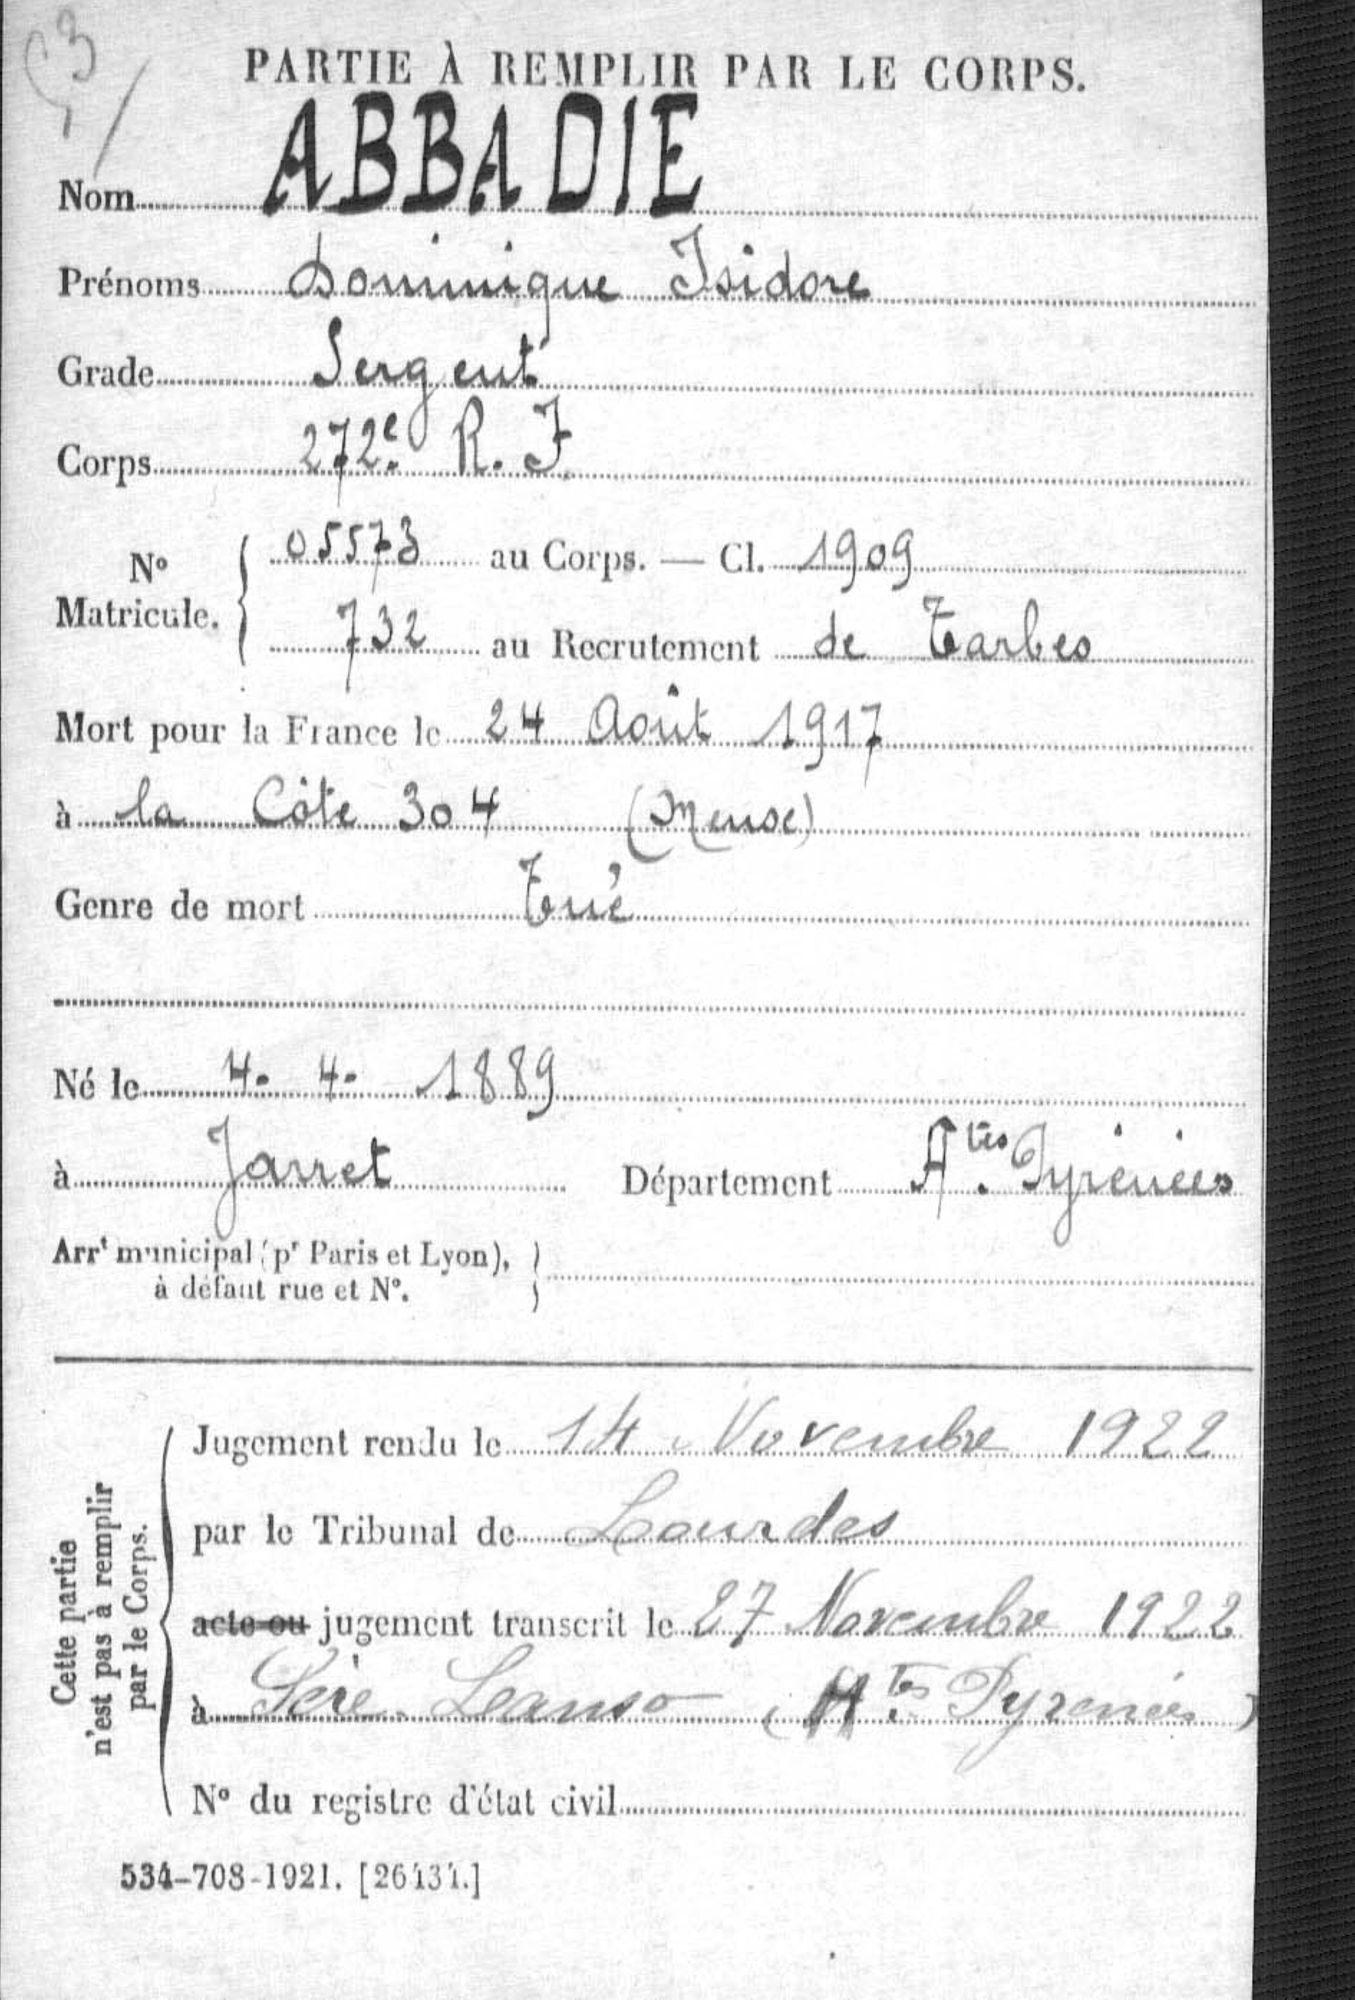 PARTIE À REMPLIR PAR LE CORPS.
Nom ABBADIE
Prénoms Dominique Isidore
Grade Sergent
Corps 272e. R. I
No Matricule. { 05573 au Corps. — Cl. 1909
732 au Recrutement de Tarbes
Mort pour la France le 24 Août 1917
à la Côte 304 (Meuse)
Genre de mort Tué
Né le 4. 4. 1889
à Jarret Département Htes. Pyrénées
Arrt municipal (pr Paris et Lyon),
à défaut rue et No.
Cette partie
n'est pas à remplir
par le Corps.
Jugement rendu le 14 Novembre 1922
par le Tribunal de Lourdes
acte ou jugement transcrit le 27 Novembre 1922
à Sère-Lanso (Htes. Pyrénées)
No du registre d'état civil
534-708-1921. [26434.]